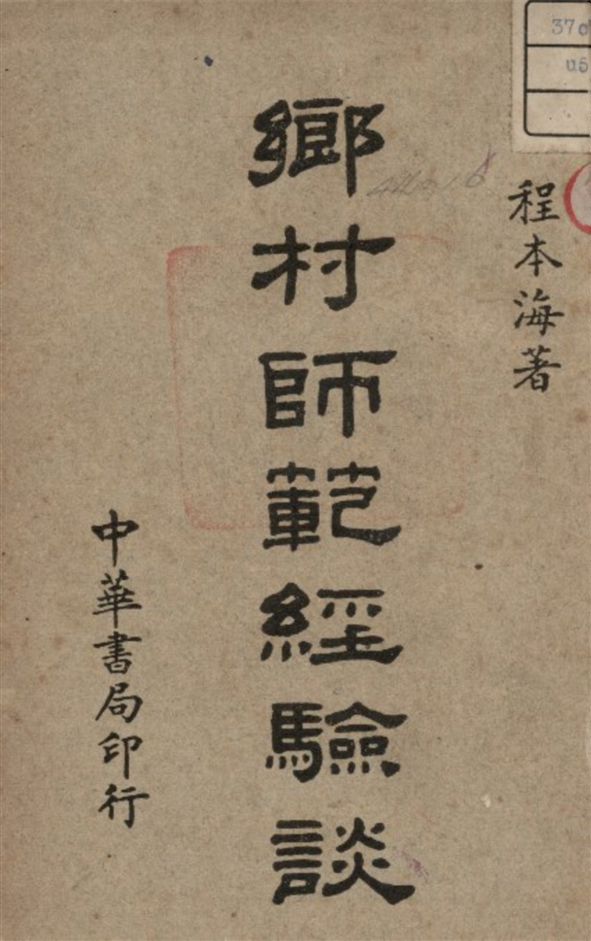 程本海著
鄉村師範經驗談
中華書局印行